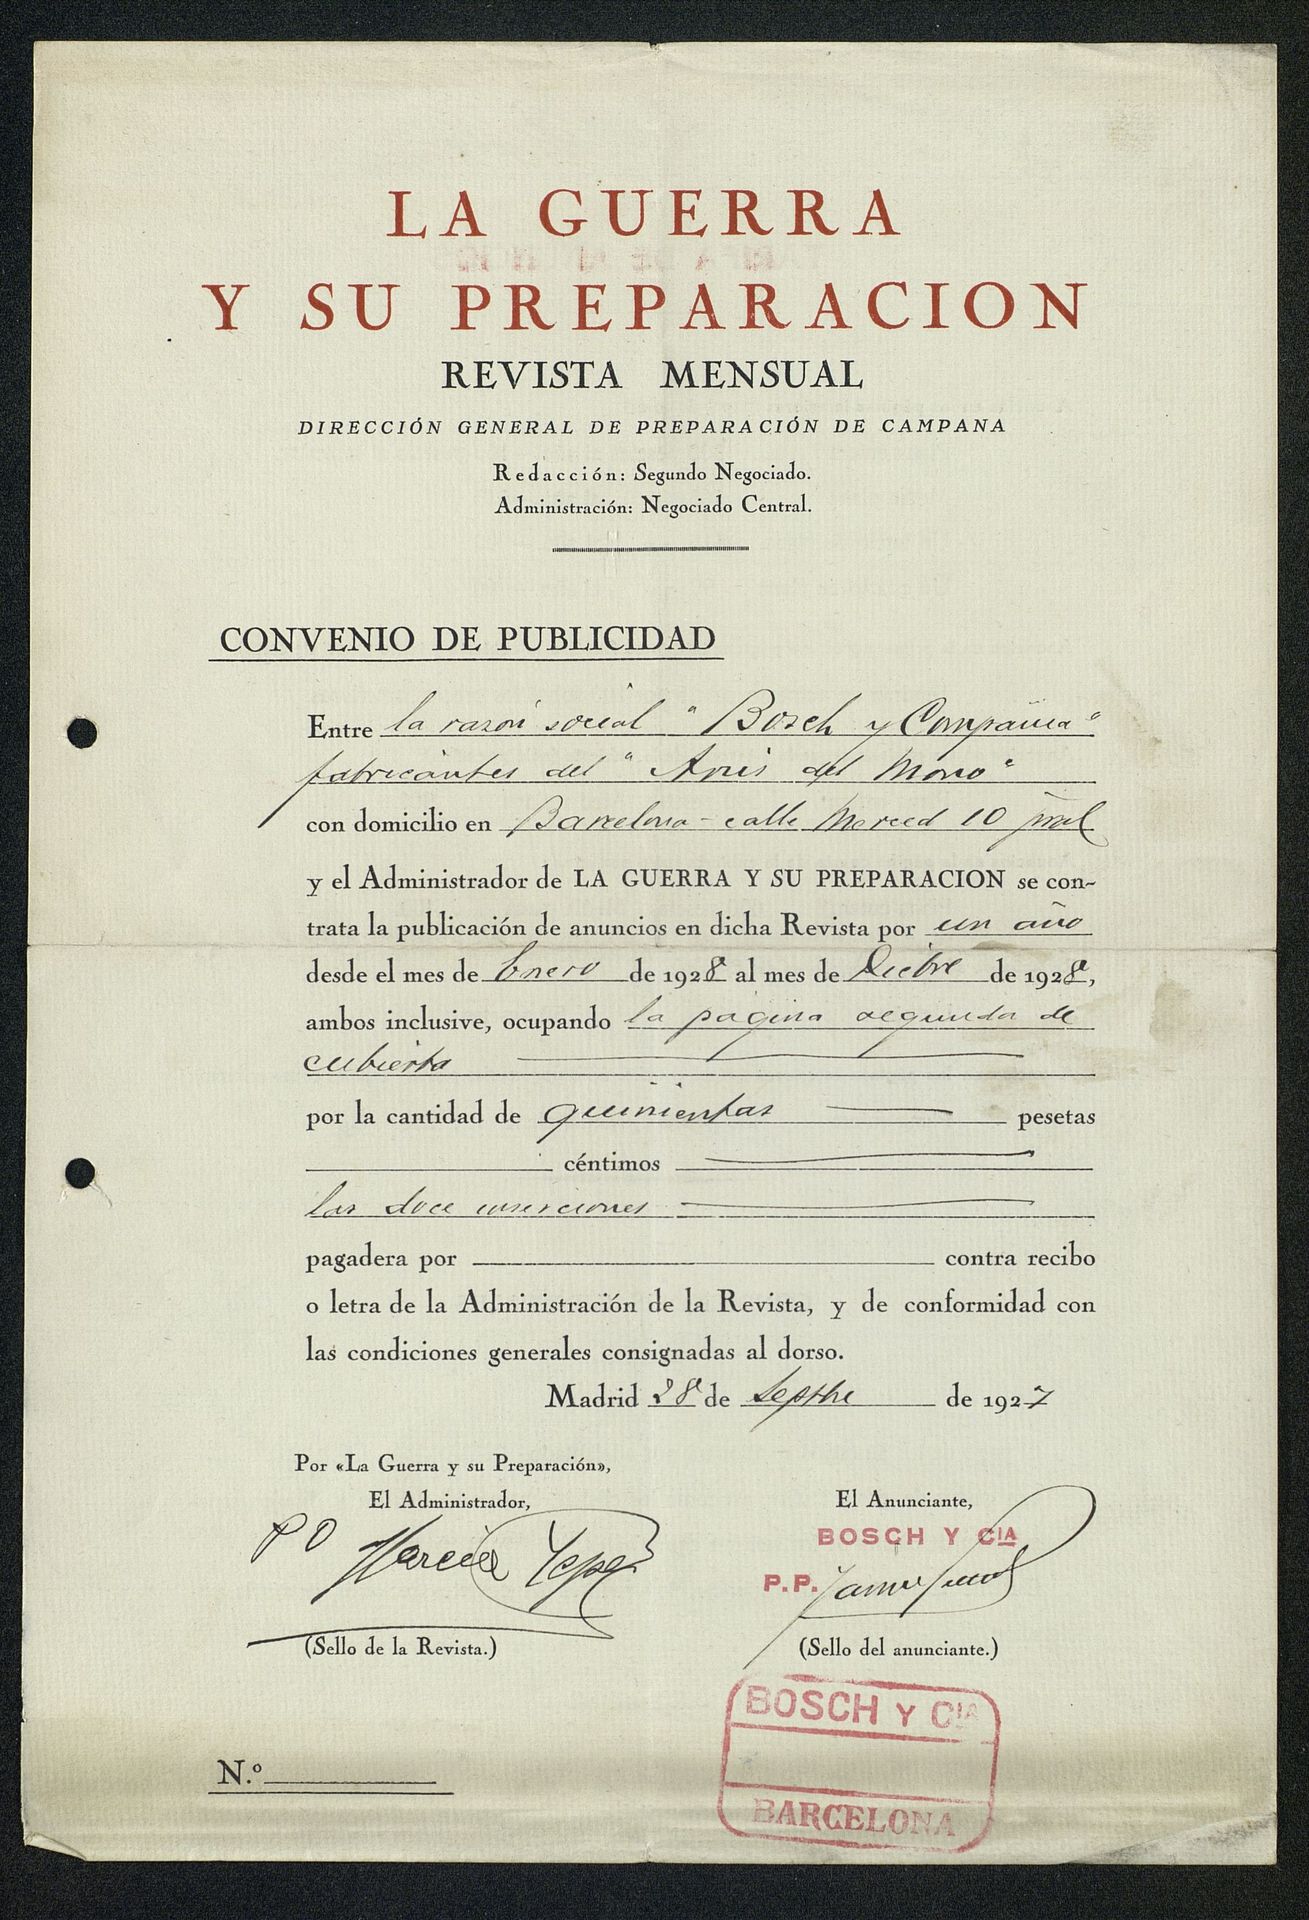 LA GUERRA
Y SU PREPARACION
REVISTA MENSUAL
DIRECCIÓN GENERAL DE PREPARACIÓN DE CAMPANA
Redacción: Segundo Negociado.
Administración: Negociado Central.
CONVENIO DE PUBLICIDAD
Entre la razón social "Bosch y Compañia"
fabricantes del "Anis del Mono"
con domicilio en Barcelona - calle Merced 10 pral
y el Administrador de LA GUERRA Y SU PREPARACION se con-
trata la publicación de anuncios en dicha Revista por un año
desde el mes de Enero de 1928 al mes de Dicbre de 1928,
ambos inclusive, ocupando la página segunda de
cubierta
por la cantidad de quinientas pesetas
céntimos
las doce inserciones
pagadera por contra recibo
o letra de la Administración de la Revista, y de conformidad con
las condiciones generales consignadas al dorso.
Madrid 28 de Septbre de 1927
Por «La Guerra y su Preparación»,
El Administrador,
El Anunciante,
PO
BOSCH Y CIA
P.P.
(Sello de la Revista.)
(Sello del anunciante.)
BOSCH Y CIA
BARCELONA
N.º